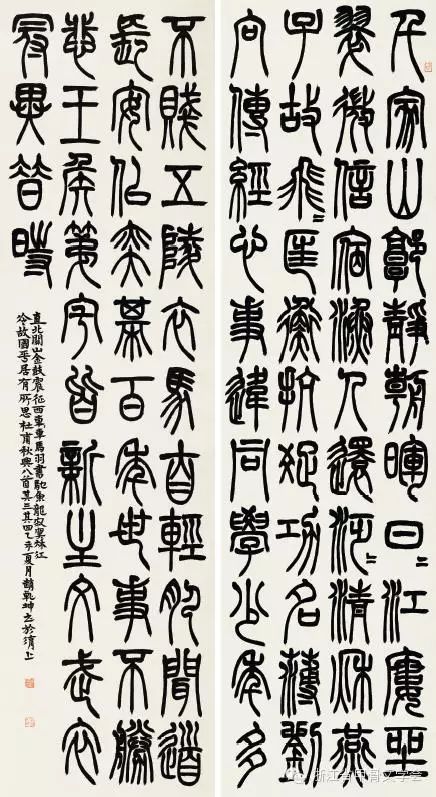 千家山郭靜朝暉日〻江樓坐
翠微信宿漁人還泛〻清秋燕
子故飛〻匡衡抗疏功名薄劉
向傳經心事違同學少年多
不賤五陵衣馬自輕肥聞道
長安似弈棋百年世事不勝
悲王侯第宅皆新主文武衣
冠異昔時
直北關山金鼓震征西車馬羽書馳魚龍寂寞秋江
冷故國平居有所思杜甫秋興八首其三其四乙未夏月趙乾坤於渭上
浙江省甲骨文学会